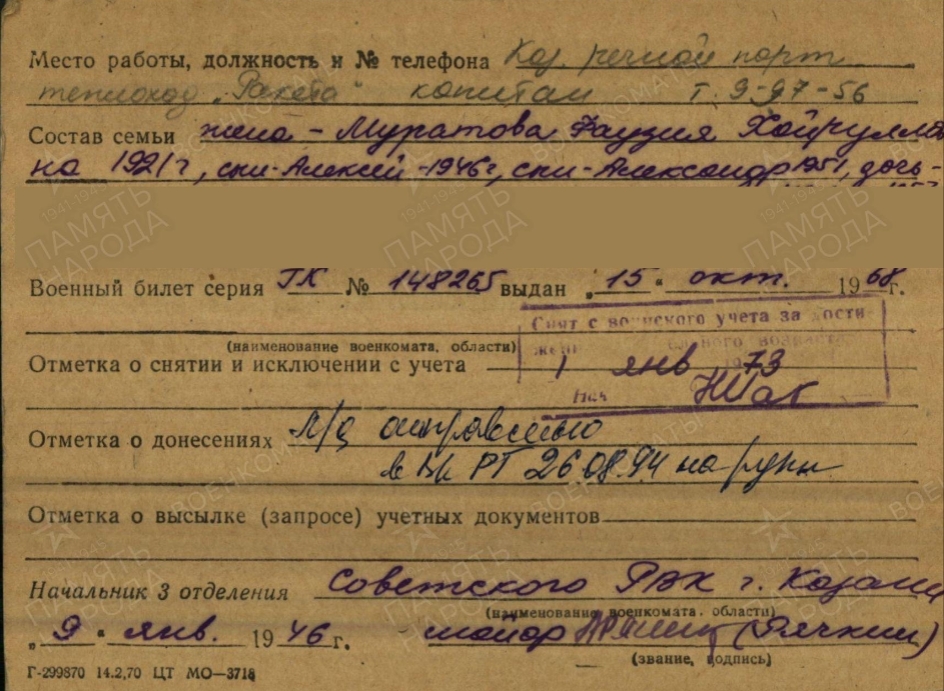 Место работы, должность и № телефона Каз. речной порт
теплоход „Ракета" капитан т. 9-97-56
Состав семьи жена - Муратова Фаузия Хайрулов
на 1921г, сын-Алексей-1946г, сын-Александр 1951, дочь-
Военный билет серия ГК № 148265 выдан „15" окт. 1968г.
(наименование военкомата, области)
Снят с воинского учета за дости-
Отметка о снятии и исключении с учета 1 янв 73
Нач
Отметка о донесениях л/д отправлено
в ВК РТ 26.08.94 на руки
Отметка о высылке (запросе) учетных документов
Начальник 3 отделения Советского РВК г. Казани
(наименование военкомата, области)
„9" янв. 1946 г. майор (Рячкин)
(звание, подпись)
Г-299870 14.2.70 ЦТ МО—3718
1941-1945
ПАМЯТЬ НАРОДА
ВОЕНКОМАТЫ